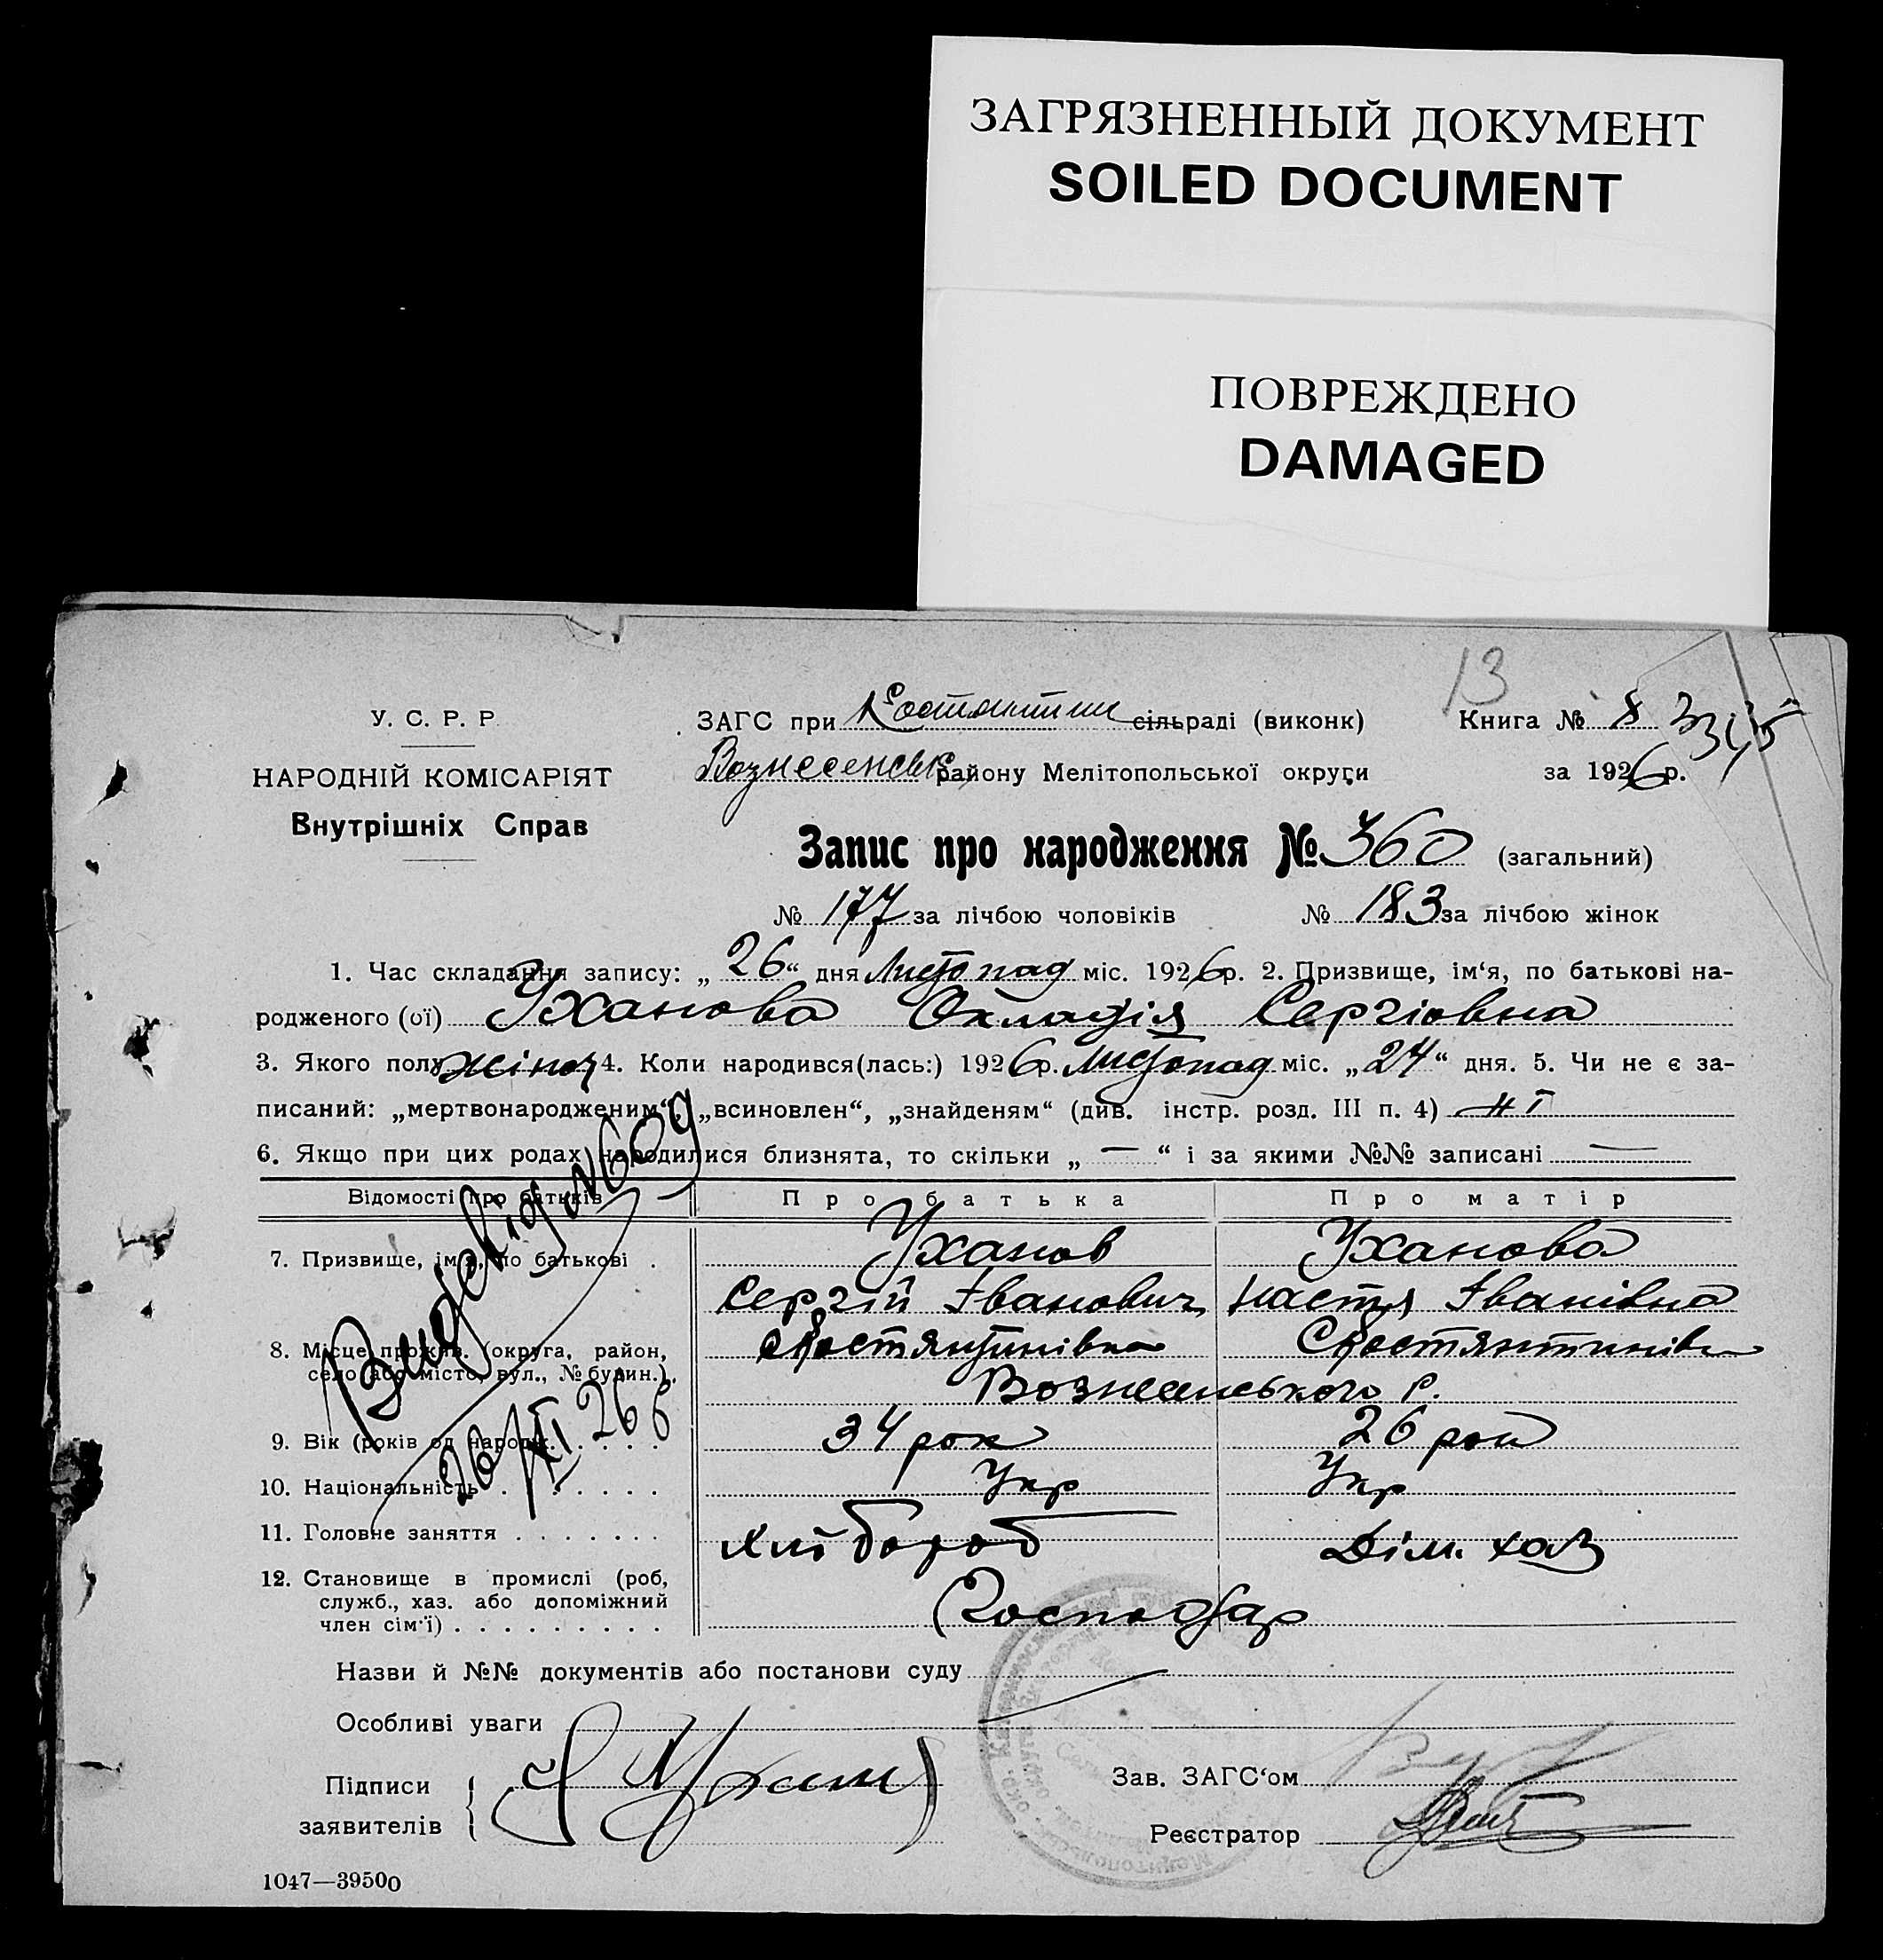 ЗАГРЯЗНЕННЫЙ ДОКУМЕНТ
SOILED DOCUMENT
ПОВРЕЖДЕНО
DAMAGED
13
У. С. Р. Р.
НАРОДНІЙ КОМІСАРІЯТ
Внутрішніх Справ
ЗАГС при Костянтин сільраді (виконк) Книга № 8 3345
Вознесенськ району Мелітопольської округи за 1926 р.
Запис про народження № 360 (загальний)
№ 177 за лічбою чоловіків № 183 за лічбою жінок
1. Час складання запису: „26“ дня Листопад міс. 1926 р. 2. Призвище, ім‘я, по батькові на-
родженого (ої) Уханова Окладія Сергіовна
3. Якого полу жіноч 4. Коли народився(лась:) 1926 р. Листопад міс. „24“ дня. 5. Чи не є за-
писаний: „мертвонародженим“, „всиновлен“, „знайденям“ (див. інстр. розд. III п. 4) ні
6. Якщо при цих родах народилися близнята, то скільки „—“ і за якими №№ записані —
Видав від №609
26/XI 26 р
Відомості про батьків Про батька Про матір
7. Призвище, ім‘я, по батькові . Уханов Уханова
Сергій Іванович Настя Іванівна
8. Місце прожив. (округа, район, село або місто, вул., № будин.). с Костянтинівка С Костянтинівк
Вознесенського р.
9. Вік (років од народж. . . . . . 34 рок 26 рок
10. Національність . . . . . . Укр Укр
11. Головне заняття . . . . . . . Хлібороб Дім. хаз
12. Становище в промислі (роб, служб., хаз. або допоміжний член сім‘ї) . . . . . . . . . Господар
Назви й №№ документів або постанови суду
Особливі уваги
Підписи заявителів
Зав. ЗАГС‘ом
Реєстратор
1047—39500